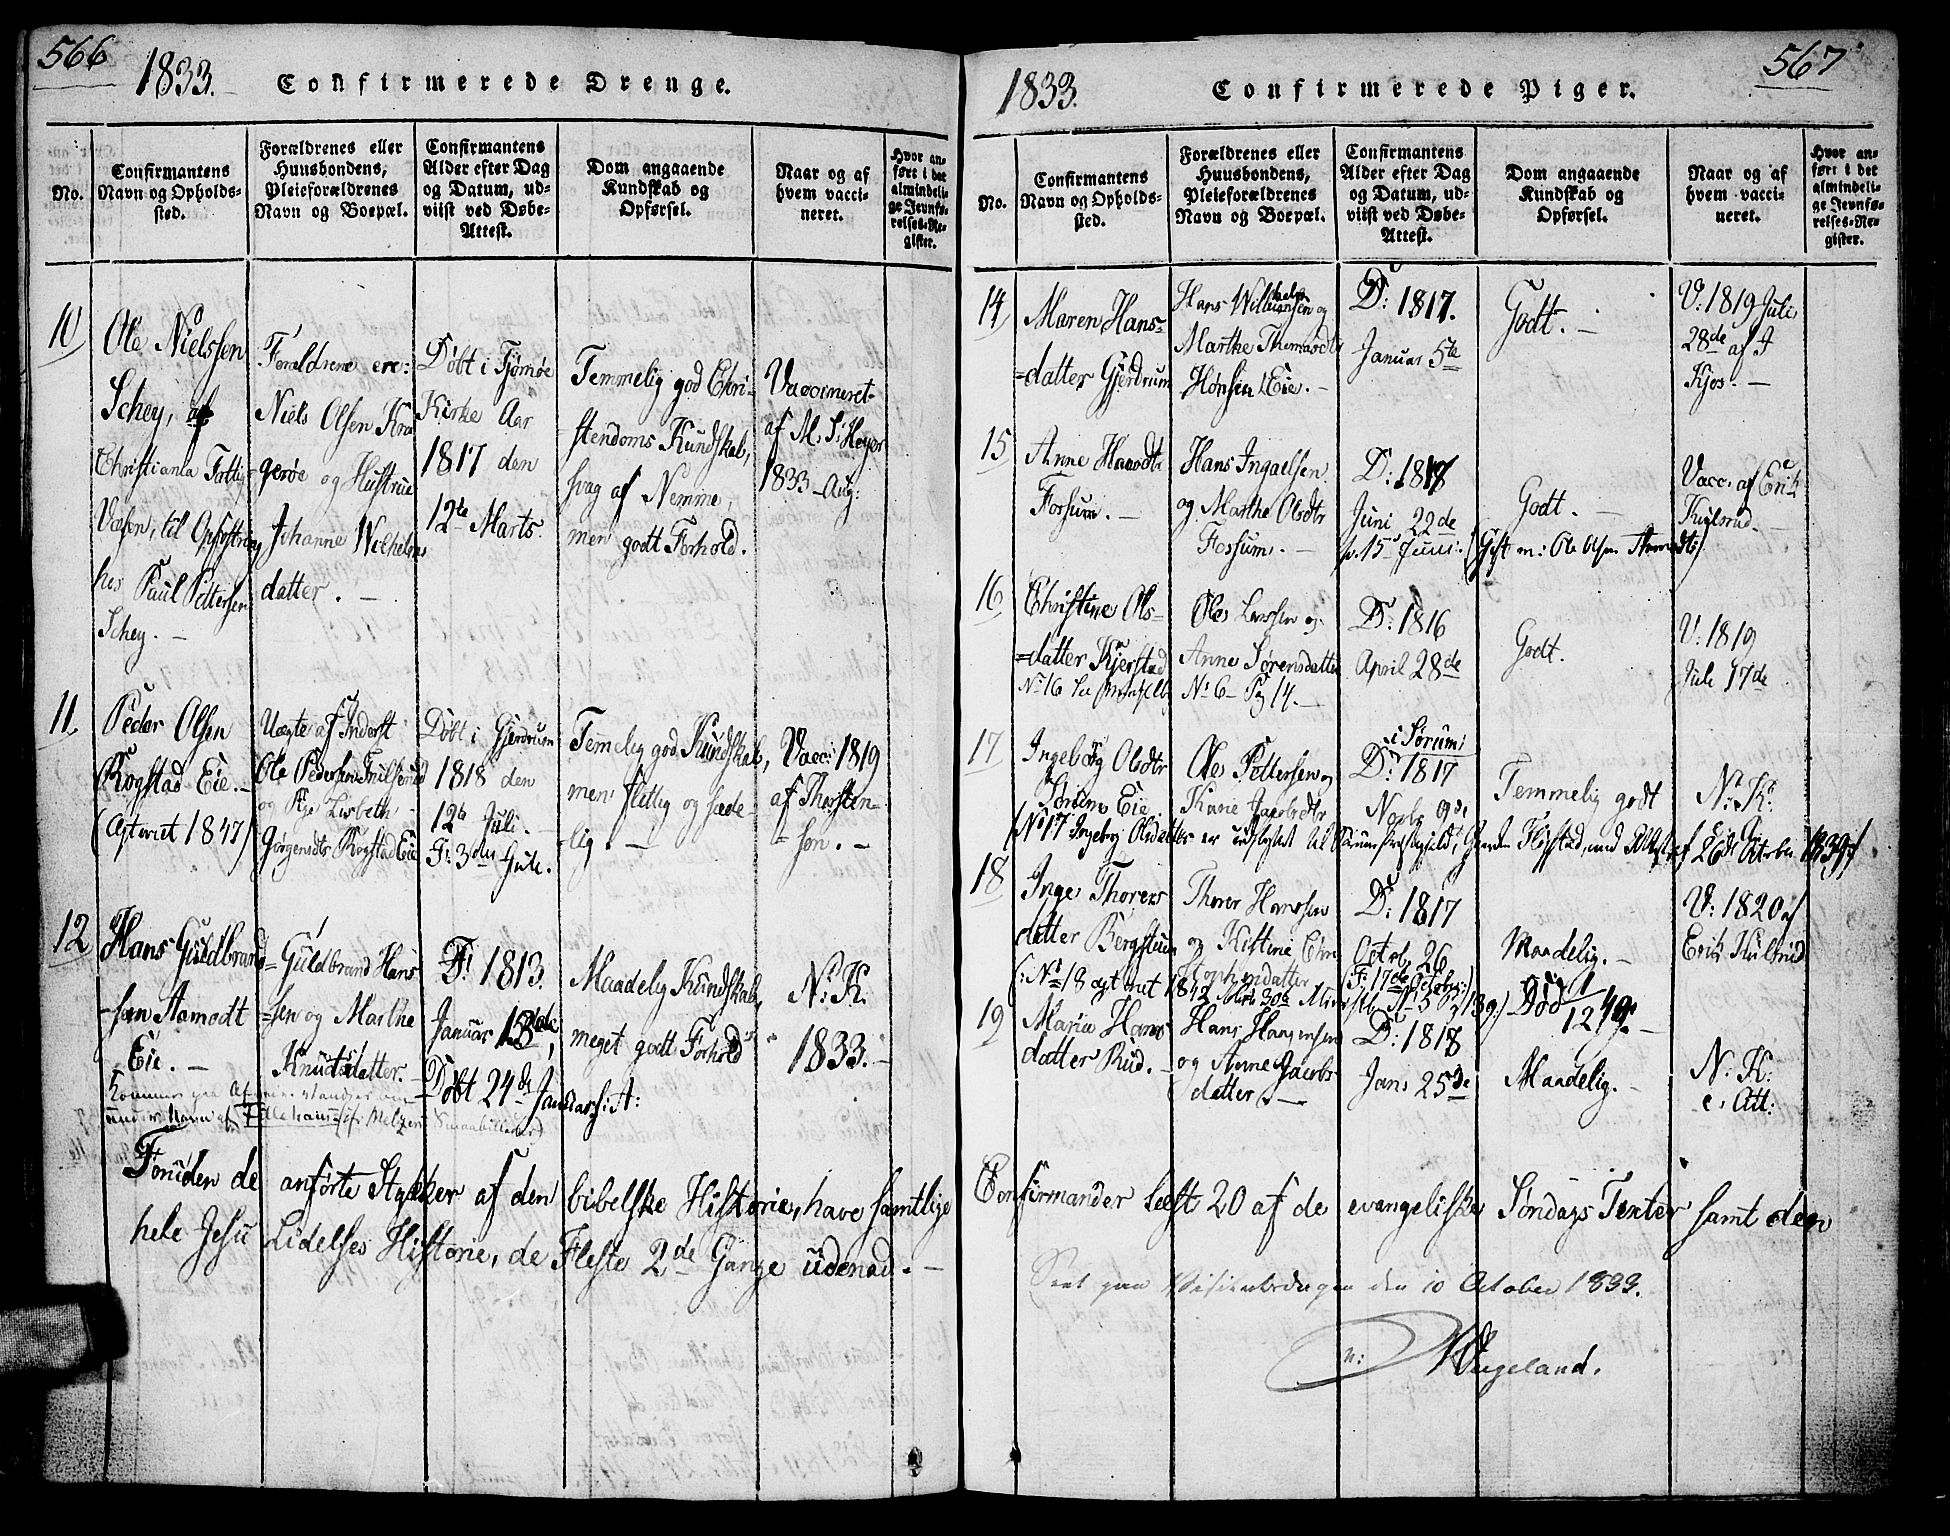 566
1833.
Confirmerede Drenge.
No.
Confirmantens
Navn og Opholds-
sted.
Forældrenes eller
Huusbondens,
Pleieforældrenes
Navn og Boepæl.
Confirmantens
Alder efter Dag
og Datum, ud-
viist ved Døbe-
Attest.
Dom angaaende
Kundskab og
Opførsel.
Naar og af
hvem vacci-
neret.
Hvor an-
ført i det
almindeli-
ge Jevnfø-
relses-Re-
gister.
10
Ole Nielssen
Schey, af
Christiania Fattig
Væsen, til Opfostring
hos Paul Pettersen
Schey. -
Forældrene ere:
Niels Olsen Kra
gerøe og Hustrue
Johanne Wilhelms
datter. -
Døbt i Tjømøe
Kirke Aar
1817 den
12te Marts.
Temmelig god Chri-
stendoms Kundskab,
svag af Nemme,
men godt Forhold.
Vaccineret
af M. S. Heyer
1833 Aug:
11.
Peder Olsen
Rogstad Eie. -
(Agteviet 1847)
Uægte af Inderst
Ole Pedersen
og Pige Lisbeth
Jørgensdtr Rogstad Eie
Døbt i Gjerdrum
1818 den
12te Juli. -
F: 3die Juli.
Temelig god Kundskab,
men flittig og sæde-
lig. -
Vacc: 1819
af Thorsten-
=sen. -
12
Hans Guldbrand
=sen Aamodt
Eie. -
Guldbrand Hans
=sen og Marthe
Knudsdatter. -
F: 1813.
Januar
Døbt 24de Januar s: A:
Maadelig Kundskab,
meget godt Forhold
N: K:
1833. -
Kommer paa
under Navn af
Foruden de anførte Stykker af den bibelske Historie, have samtlige
hele Jesu Lidelses Historie, de Fleste 2de Gange udenad. -
567
1833.
Confirmerede Piger.
No.
Confirmantens
Navn og Opholds-
sted.
Forældrenes eller
Huusbondens,
Pleieforældrenes
Navn og Boepæl.
Confirmantens
Alder efter Dag
og Datum, ud-
viist ved Døbe-
Attest.
Dom angaaende
Kundskab og
Opførsel.
Naar og af
hvem vacci-
neret.
Hvor an-
ført i det
almindeli-
ge Jevnfø-
relses-Re-
gister.
14
Maren Hans-
=datter Gjerdrum
Hans og
Marthe Thomasdtr
Hønsen Eie. -
D: 1817.
Januar 5te
Godt. -
V: 1819 Juli
28de af J
Kjos. -
15
Anne Hansdtr
Fossum. -
Hans Ingaelsen
og Marthe Olsdtr
Fossum. -
D: 1817
Juni 22de
15 Juni:
Godt. -
(Gift m: Ole Olsen
Vacc. af Erik
Kulsrud. -
16
Christine Ols-
=datter Kjerstad
Ole Larssen og
Anne Sørensdatter
D: 1816
April 28de
Godt.
V: 1819
Juli 17de
No 16 No 6 - Pag 14. -
17
Ingeborg Olsdtr
Sørum Eie
Ole Pettersen og
Karie Jacobsdtr
i Sørum
D: 1817
Novbr 9de
Temmelig godt
N: K:
(No 17 Ingeborg Olsdatter er udflyttet til Sørum Præstegield, Gaarden med Attest af 26de October 1839)
18
Inge Thorers
datter Bergstuen
Thorer Hanssen
og Kistine Chri
stophersdatter
D: 1817
Octob. 26
F: 17de October:
Maadelig. -
V: 1820 af
Erik Kulsrud
(: No 18 agtviet 1842
Død 1/12 49. -
19
Marie Hans
datter Rud. -
Hans Hansensen
og Anne Jacobs
datter. -
D: 1818
Jan: 25de
Maadelig. -
N: K:
e: Att:
Confirmander læst 20 af de evangeliske Søndags Texter samt den
Seet paa Visitatsdagen den 10 October 1833.
n: Wergeland.